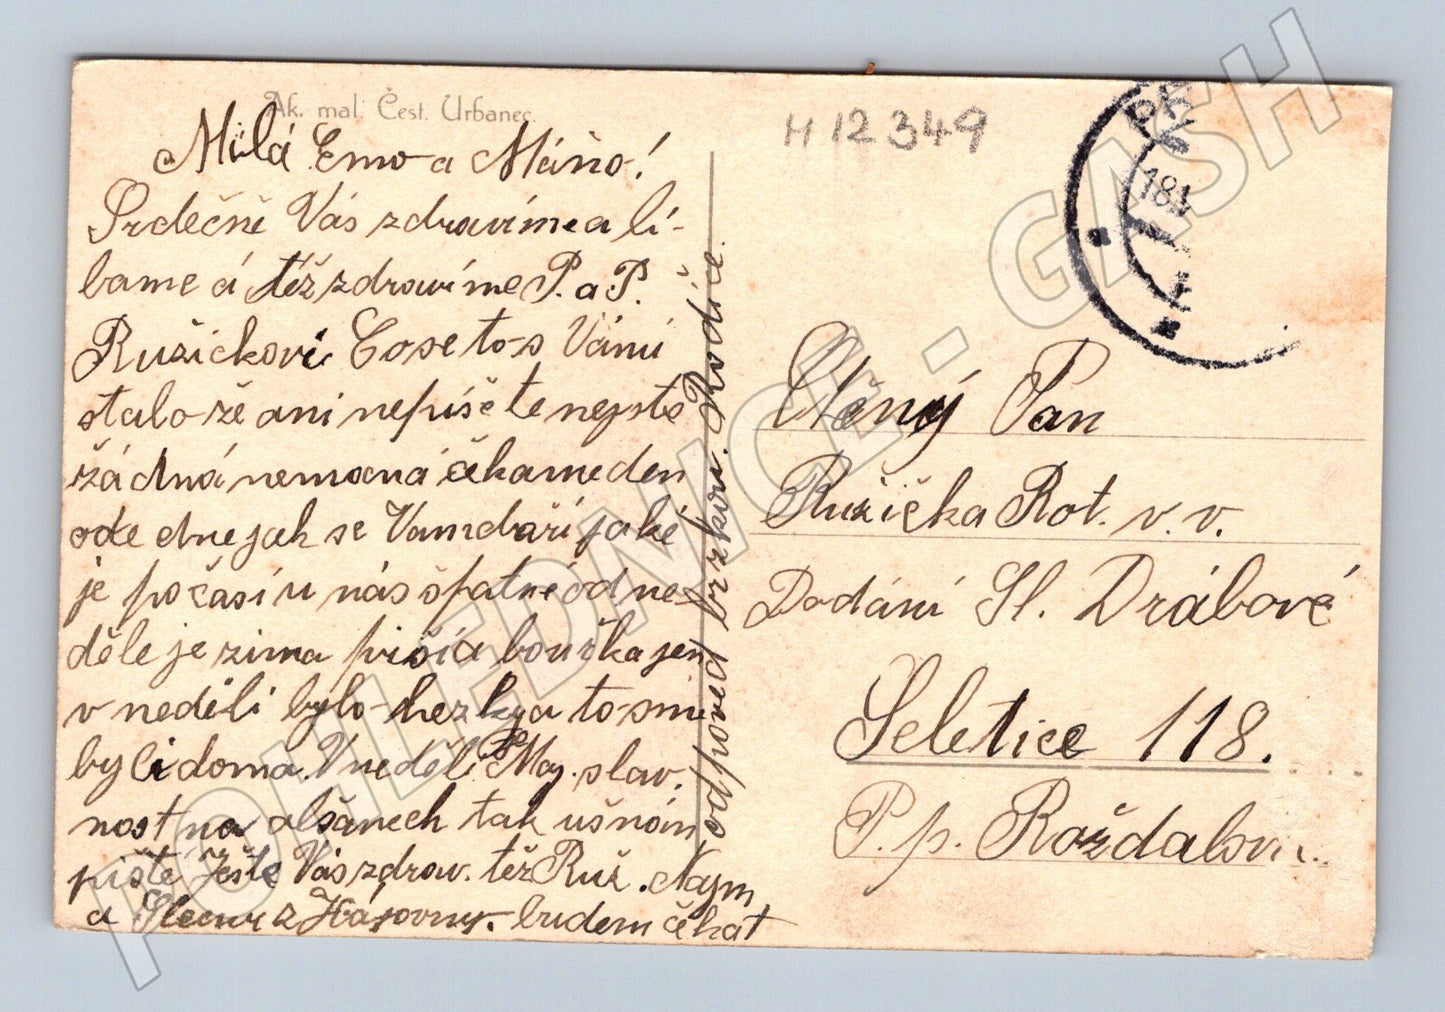 Ak. mal. Čest. Urbanec.
H 12349
Milá Emo a Máňo!
Srdečně Vás zdravíme a lí-
báme á též zdravíme P. a P.
Ružičkovi Cose to-s Vámi
stalo že ani nepíšete nejste
žádná nemocná čekáme den
ode dne jak se Vám daří jaké
je počasí u nás špatné od ne-
děle je zima prišía bouřka jen
v neděli bylo hezky a to sme
byli doma. V neděli Maj. slav.
nost na olšanech tak
pište Ještě Vás zdrav. též Ruž. Najm
a Slecny z Hájovny. budem čekat
odpověd brzkou. Rodiče.
PR
181
Ctěný Pan
Ružička Rot. v. v.
Dodání Sl. Drábové
Seletice 118.
P. p. Rožďalovi
POHLEDNICE - GASH